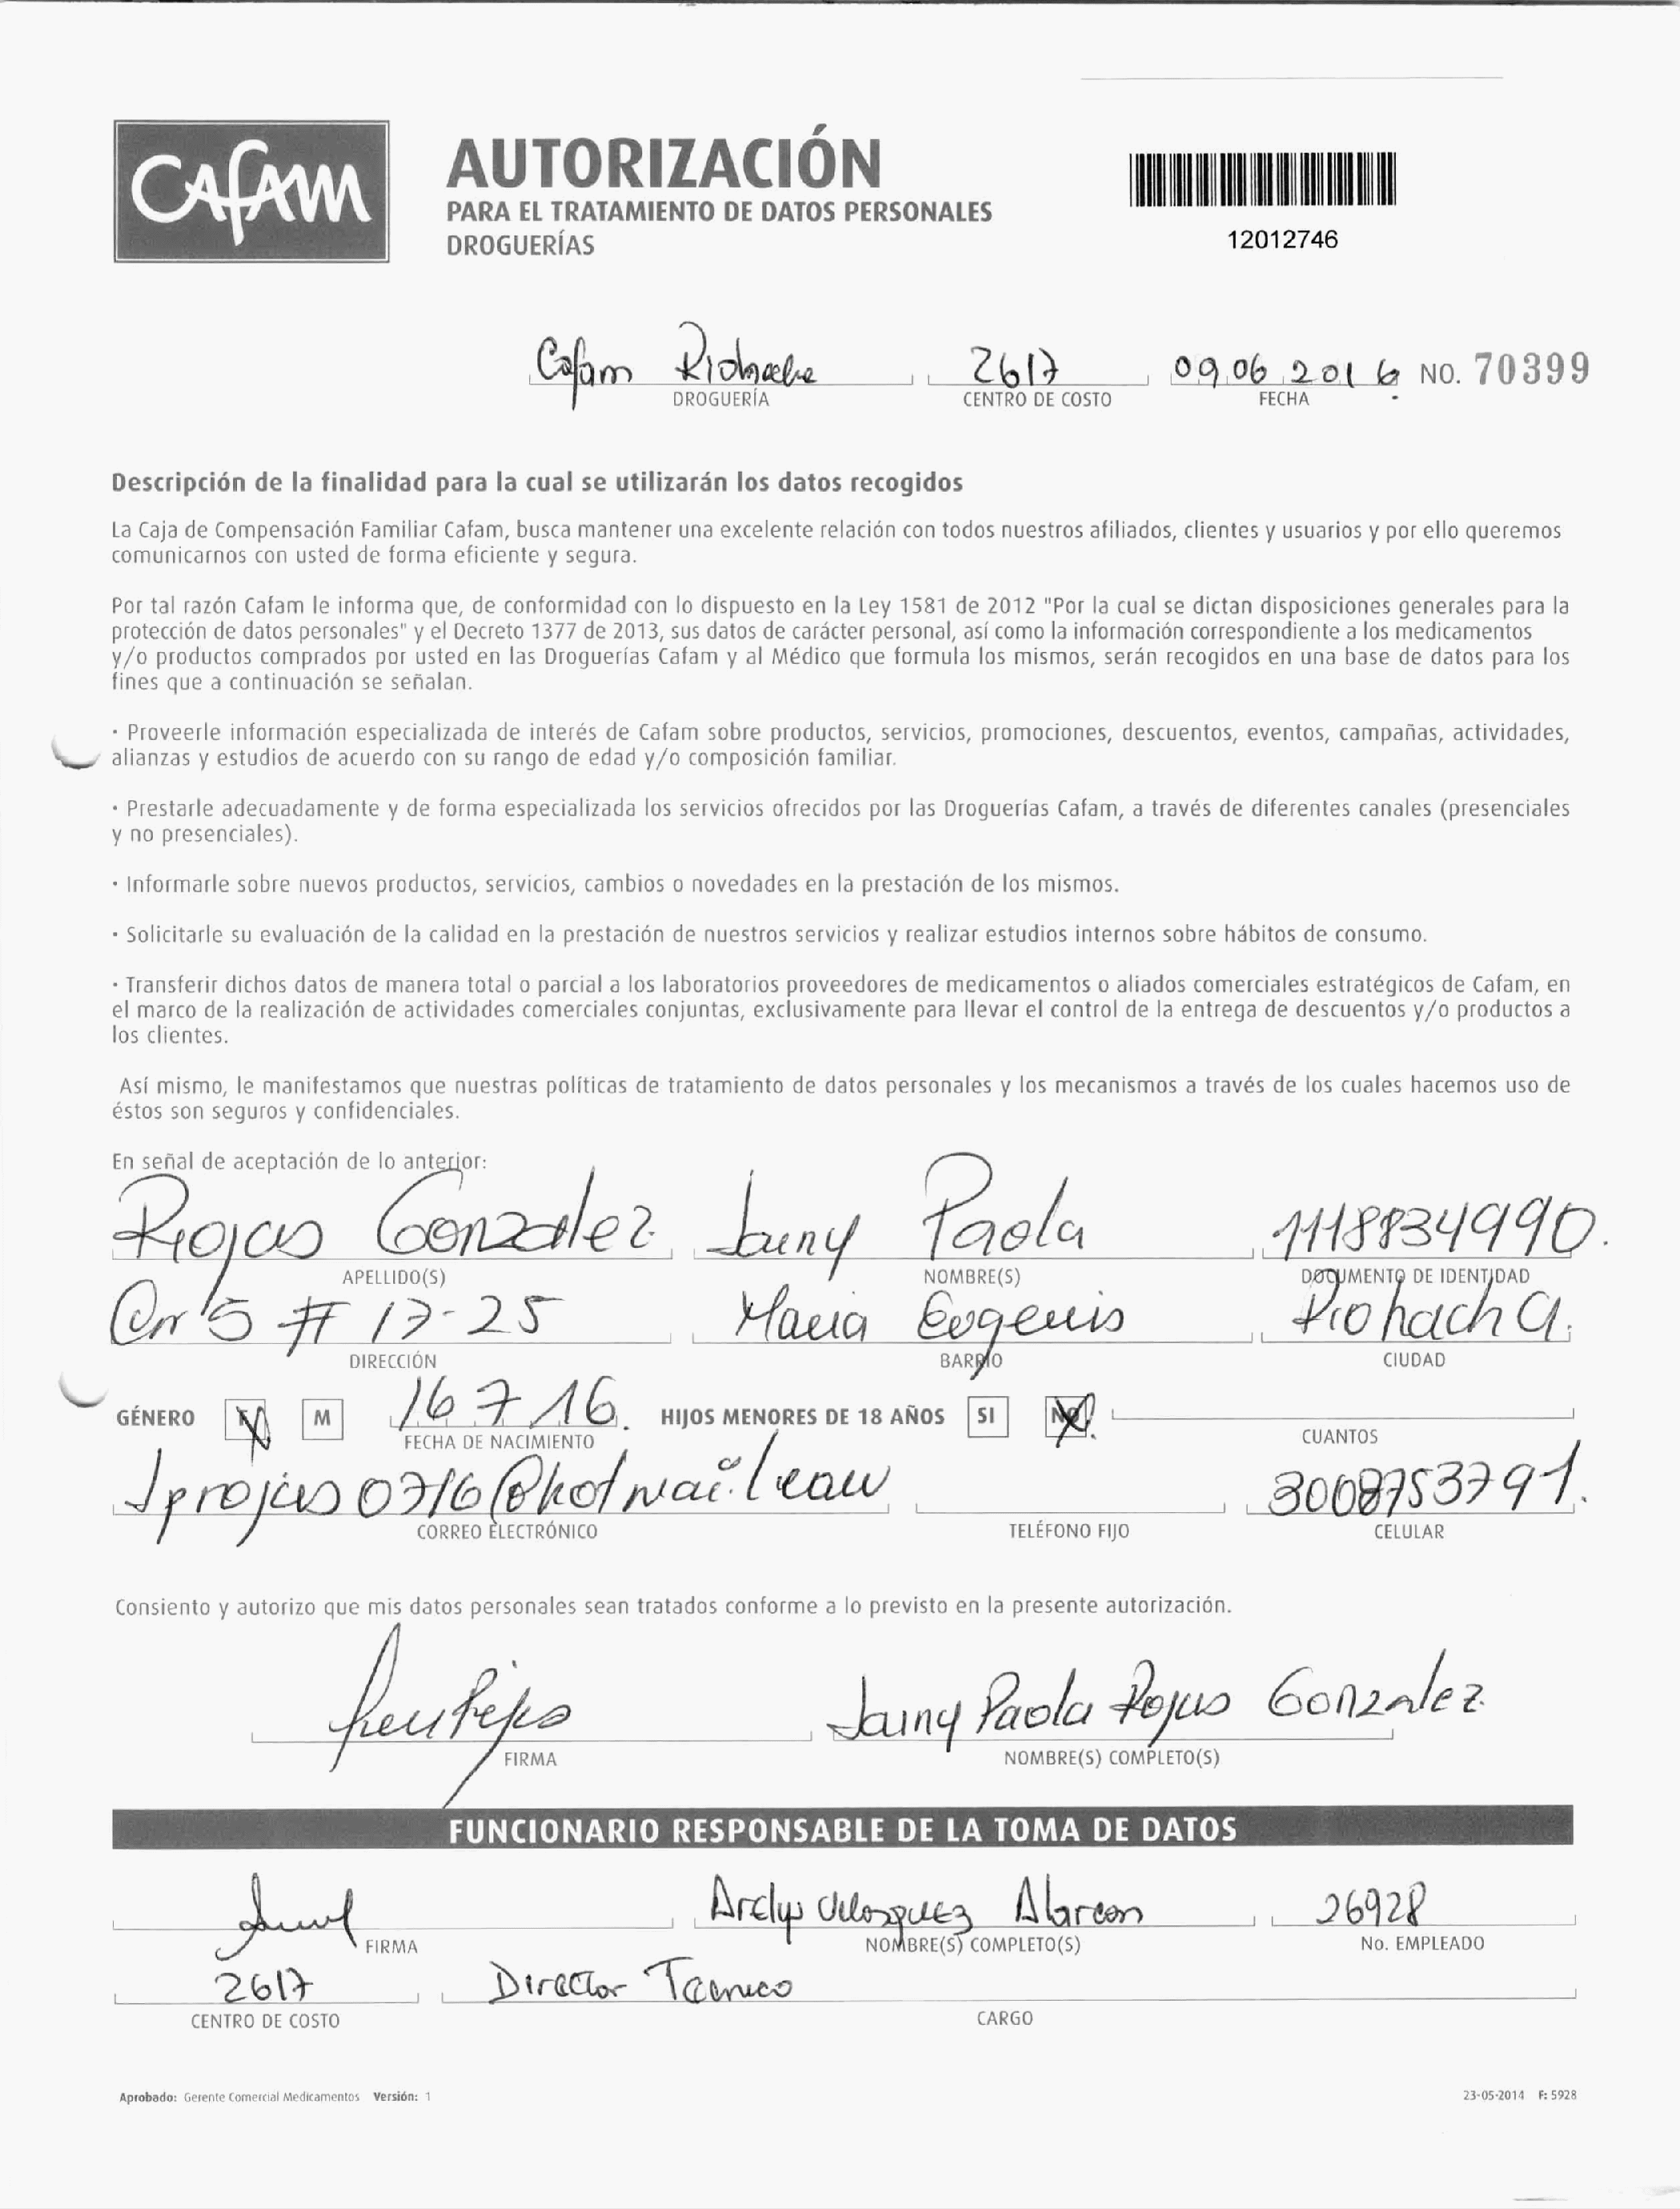 CAFAM
AUTORIZACIÓN
PARA EL TRATAMIENTO DE DATOS PERSONALES
DROGUERÍAS
12012746
Cafam Riohacha 2617 09 06 2016 NO. 70399
DROGUERÍA CENTRO DE COSTO FECHA
Descripción de la finalidad para la cual se utilizarán los datos recogidos
La Caja de Compensación Familiar Cafam, busca mantener una excelente relación con todos nuestros afiliados, clientes y usuarios y por ello queremos
comunicarnos con usted de forma eficiente y segura.
Por tal razón Cafam le informa que, de conformidad con lo dispuesto en la Ley 1581 de 2012 "Por la cual se dictan disposiciones generales para la
protección de datos personales" y el Decreto 1377 de 2013, sus datos de carácter personal, así como la información correspondiente a los medicamentos
y/o productos comprados por usted en las Droguerías Cafam y al Médico que formula los mismos, serán recogidos en una base de datos para los
fines que a continuación se señalan.
· Proveerle información especializada de interés de Cafam sobre productos, servicios, promociones, descuentos, eventos, campañas, actividades,
alianzas y estudios de acuerdo con su rango de edad y/o composición familiar.
· Prestarle adecuadamente y de forma especializada los servicios ofrecidos por las Droguerías Cafam, a través de diferentes canales (presenciales
y no presenciales).
· Informarle sobre nuevos productos, servicios, cambios o novedades en la prestación de los mismos.
· Solicitarle su evaluación de la calidad en la prestación de nuestros servicios y realizar estudios internos sobre hábitos de consumo.
· Transferir dichos datos de manera total o parcial a los laboratorios proveedores de medicamentos o aliados comerciales estratégicos de Cafam, en
el marco de la realización de actividades comerciales conjuntas, exclusivamente para llevar el control de la entrega de descuentos y/o productos a
los clientes.
Así mismo, le manifestamos que nuestras políticas de tratamiento de datos personales y los mecanismos a través de los cuales hacemos uso de
éstos son seguros y confidenciales.
En señal de aceptación de lo anterior:
Rojas Gonzalez Jainy Paola 1118834990.
APELLIDO(S) NOMBRE(S) DOCUMENTO DE IDENTIDAD
Cr 5 # 17-25 Maria Eugenia Riohacha.
DIRECCIÓN BARRIO CIUDAD
GÉNERO M 16 7 16. HIJOS MENORES DE 18 AÑOS SI NO
FECHA DE NACIMIENTO CUANTOS
Jprojas0716@hotmail.com 3008753791.
CORREO ELECTRÓNICO TELÉFONO FIJO CELULAR
Consiento y autorizo que mis datos personales sean tratados conforme a lo previsto en la presente autorización.
Jainy Paola Rojas Gonzalez
FIRMA NOMBRE(S) COMPLETO(S)
FUNCIONARIO RESPONSABLE DE LA TOMA DE DATOS
Arelys Velasquez Alarcon 26928
FIRMA NOMBRE(S) COMPLETO(S) No. EMPLEADO
2617 Director Tecnico
CENTRO DE COSTO CARGO
Aprobado: Gerente Comercial Medicamentos Versión: 1 23-05-2014 F: 5928